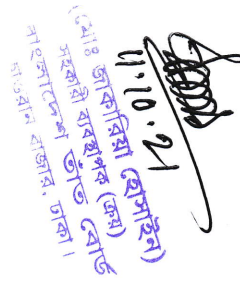 11.10.21
(মোঃ জাকারিয়া হোসাইন)
সহকারী ব্যবস্থাপক (ক্রয়)
বাংলাদেশ তাঁত বোর্ড
কাওরান বাজার, ঢাকা।